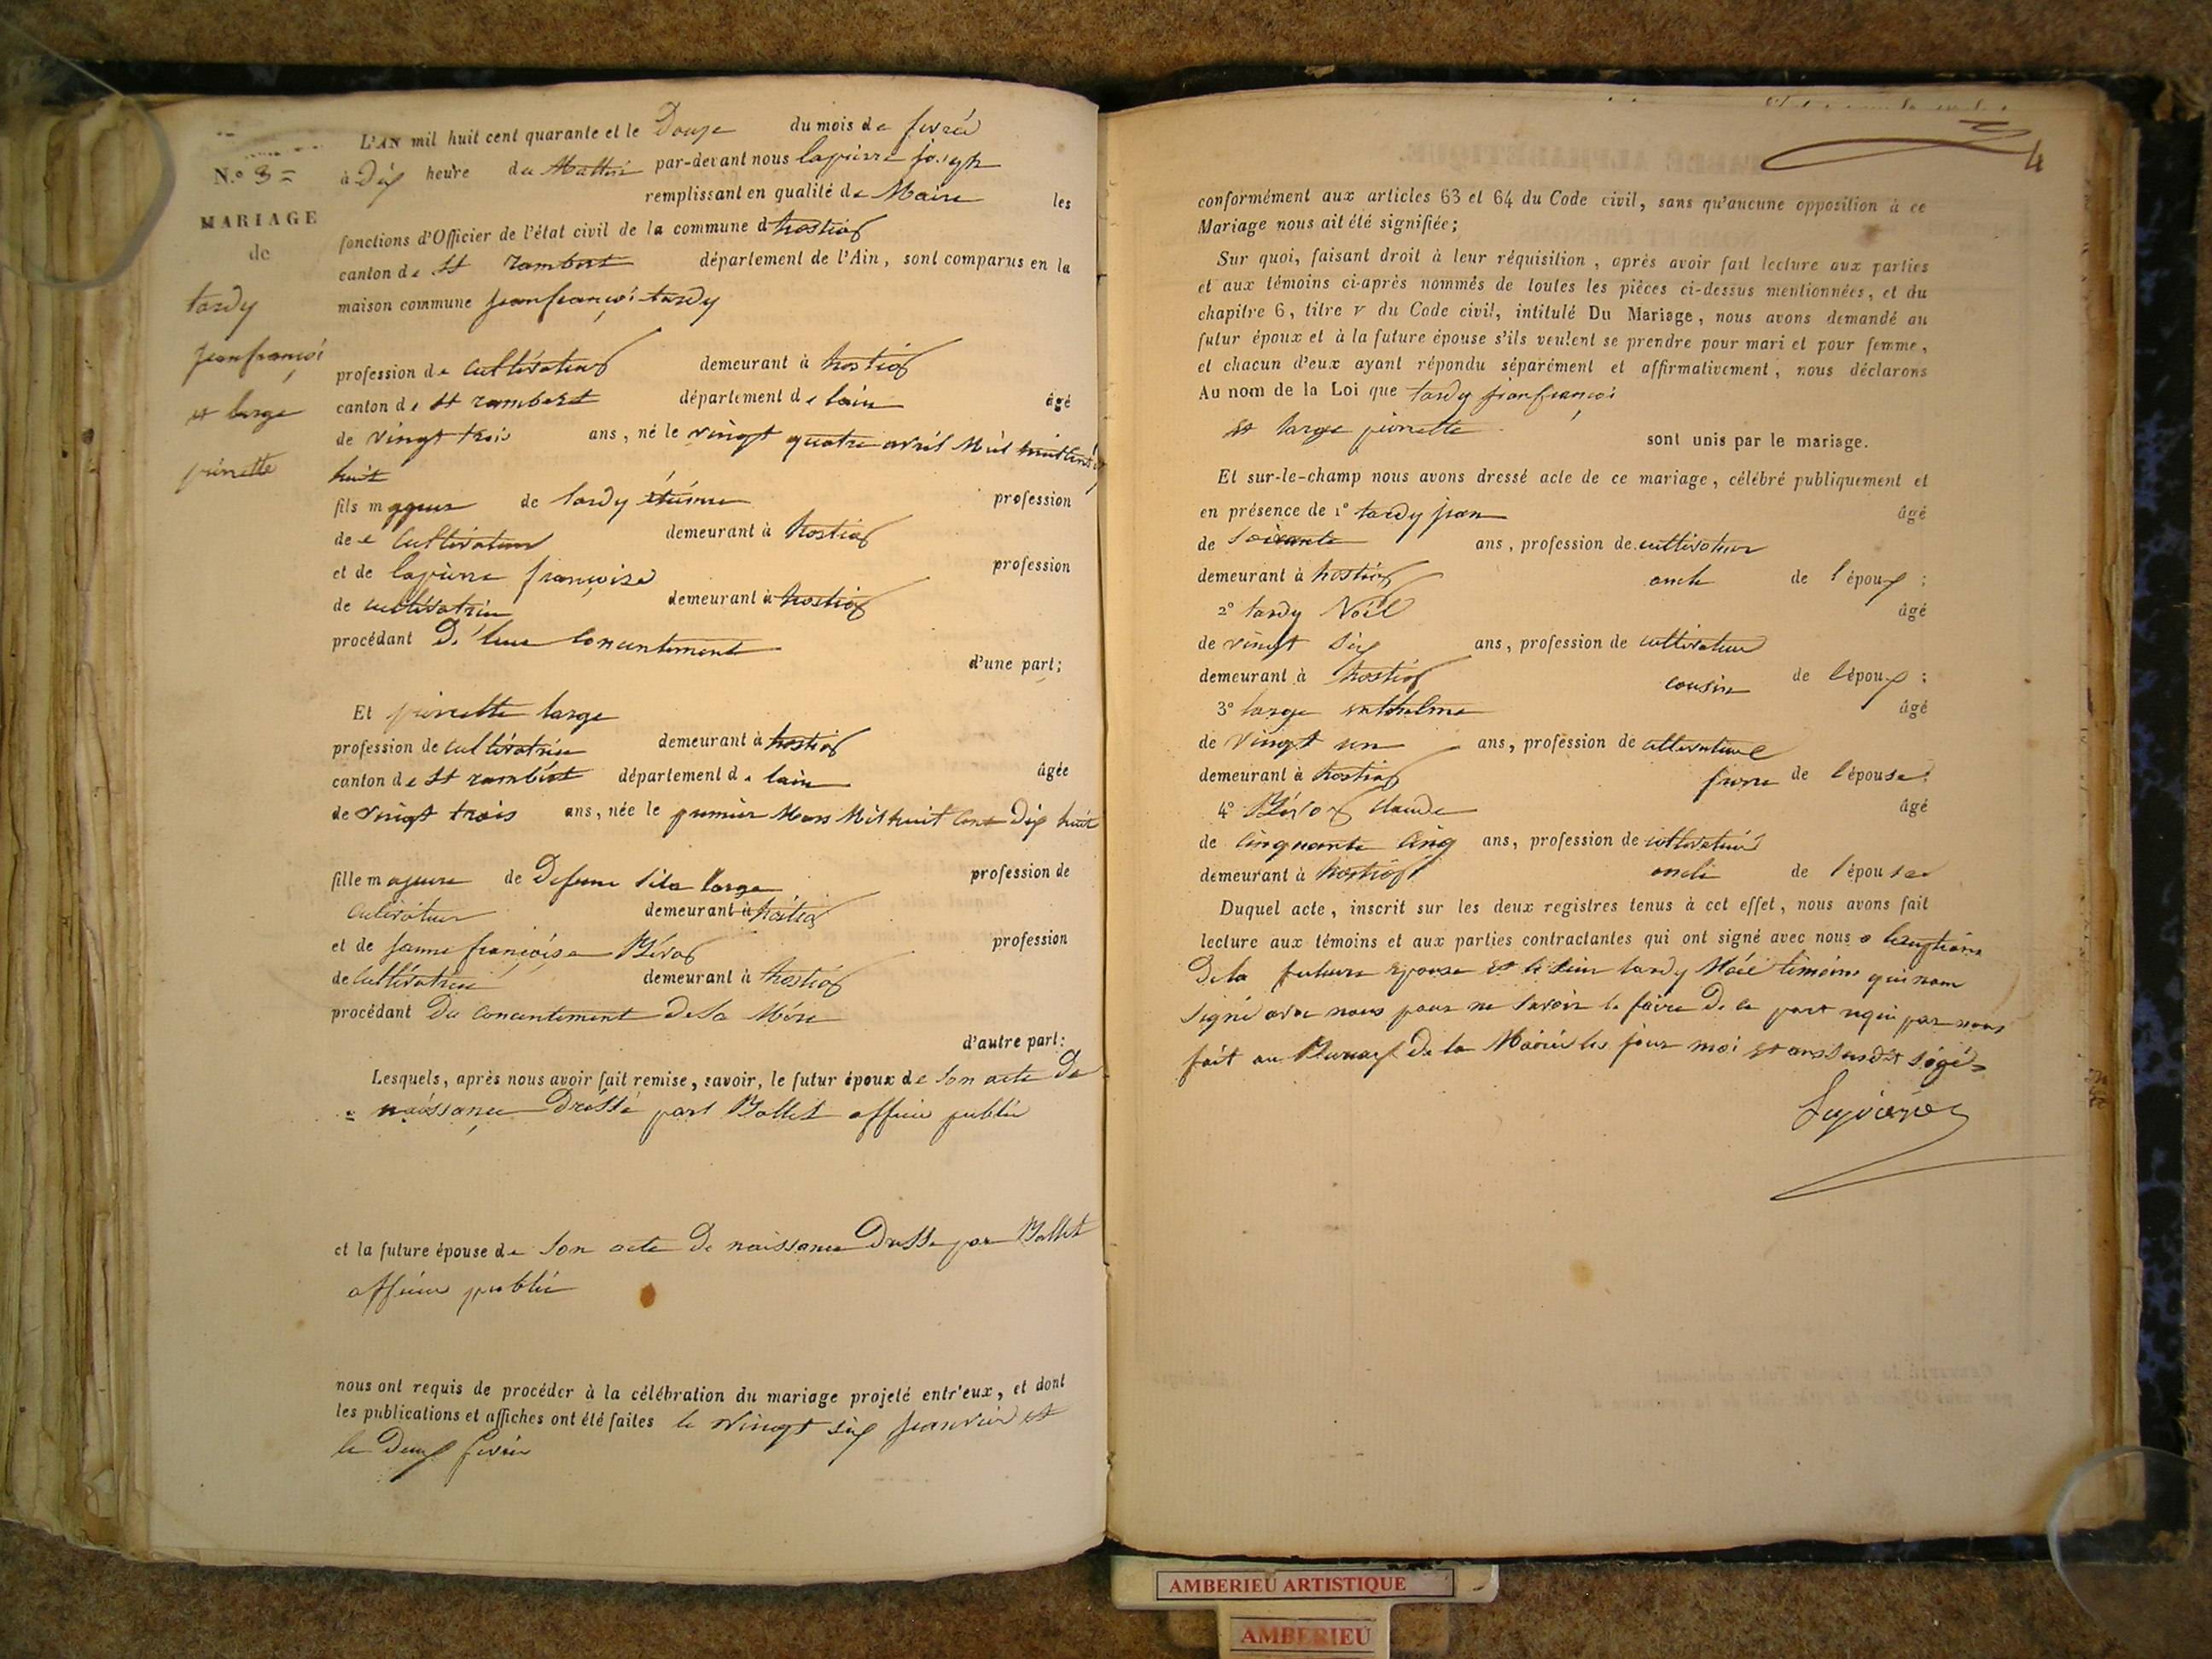 N.o 3=
MARIAGE
de
tardy
jeanfrançoi
et large
pierrette
L'AN mil huit cent quarante et le Douze du mois de fevrié
à Dix heure du Mattin par-devant nous lapierre joseph
remplissant en qualité de Maire les
fonctions d'Officier de l'état civil de la commune d hostiaz
canton de St rambert département de l'Ain, sont comparus en la
maison commune jeanfrançoi tardy
profession de cultivateur demeurant à hostiaz
canton de St rambert département de lain âgé
de vingt trois ans, né le vingt quatre avril Mil huit cent
huit
fils mageur de tardy étienne profession
de cultivateur demeurant à hostiaz
et de lapierre françoise profession
de cultivatrice demeurant à hostiaz
procédant De leur concentement
d'une part;
Et pierrette large
profession de cultivatrice demeurant à hostiaz
canton de St rambert département de lain âgée
de vingt trois ans, née le premier Mars Mil huit cent Dix huit
fille majeure de Defunt large profession de
cultivateur demeurant à hostiaz
et de jeanne françoise Béroz profession
de cultivatrice demeurant à hostiaz
procédant Du concentement De sa Mère
d'autre part:
Lesquels, après nous avoir fait remise, savoir, le futur époux de son acte De
naissance Dressé part Ballet officier public
et la future épouse de son acte De naissance Dressé par Ballet
officier public
nous ont requis de procéder à la célébration du mariage projeté entr'eux, et dont
les publications et affiches ont été faites le vingt six janvier et
le Deux fevrier
4
conformément aux articles 63 et 64 du Code civil, sans qu'aucune opposition à ce
Mariage nous ait été signifiée;
Sur quoi, faisant droit à leur réquisition, après avoir fait lecture aux parties
et aux témoins ci-après nommés de toutes les pièces ci-dessus mentionnées, et du
chapitre 6, titre v du Code civil, intitulé Du Mariage, nous avons demandé au
futur époux et à la future épouse s'ils veulent se prendre pour mari et pour femme,
et chacun d'eux ayant répondu séparément et affirmativement, nous déclarons
Au nom de la Loi que tardy jeanfrançoi
et large pierrette
sont unis par le mariage.
Et sur-le-champ nous avons dressé acte de ce mariage, célébré publiquement et
en présence de 1o tardy jean âgé
de soixante ans, profession de cultivateur
demeurant à hostiaz oncle de l'époux;
2o tardy Noël âgé
de vingt six ans, profession de cultivateur
demeurant à hostiaz cousin de lépoux;
3o large anthelme âgé
de vingt un ans, profession de cultivateur
demeurant à hostiaz frère de lépouse;
4o Béroz claude âgé
de cinquante cinq ans, profession de cultivateur
demeurant à hostiaz oncle de l'épouse
Duquel acte, inscrit sur les deux registres tenus à cet effet, nous avons fait
lecture aux témoins et aux parties contractantes qui ont signé avec nous
De la future epouse et tardy Noël témoins qui nom
signé avec nous pour ne savoir le faire De ce part par nous
fait au Bureau De la Mairie les jour moi et ans susdit
Lapierre
AMBERIEU ARTISTIQUE
AMBERIEU